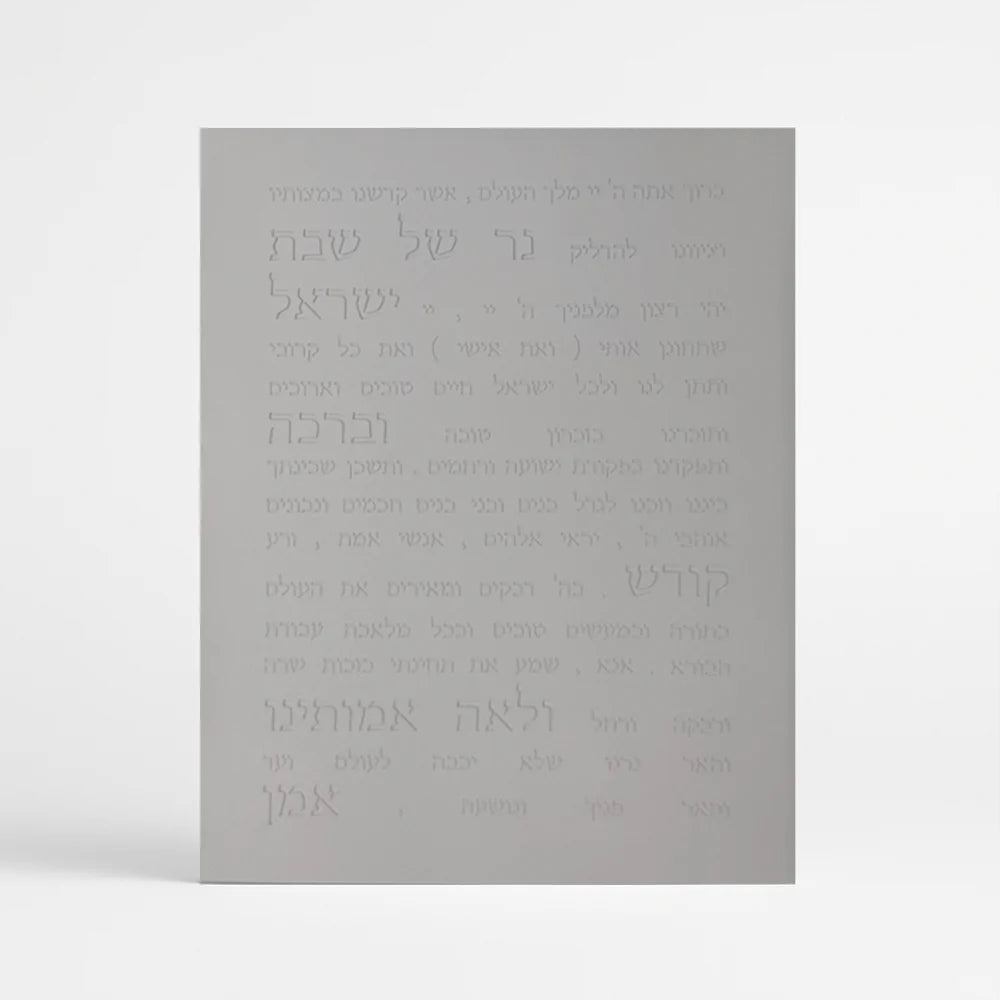 ברוך אתה ה' יי מלך העולם , אשר קדשנו במצותיו
וציונו להדליק נר של שבת
יהי רצון מלפניך ה' יי , יי ישראל
שתחונן אותי ( ואת אישי ) ואת כל קרובי
ותתן לנו ולכל ישראל חיים טובים וארוכים
ותזכרנו בזכרון טובה וברכה
ותפקדנו בפקודת ישועה ורחמים . ותשכן שכינתך
ביננו וזכנו לגדל בנים ובני בנים חכמים ונבונים
אוהבי ה' , יראי אלהים , אנשי אמת , זרע
קודש , בה' דבקים ומאירים את העולם
בתורה ובמעשים טובים ובכל מלאכת עבודת
הבורא . אנא , שמע את תחינתי בזכות שרה
ורבקה ורחל ולאה אמותינו
והאר נרנו שלא יכבה לעולם ועד
והאר פניך ונושעה , אמן